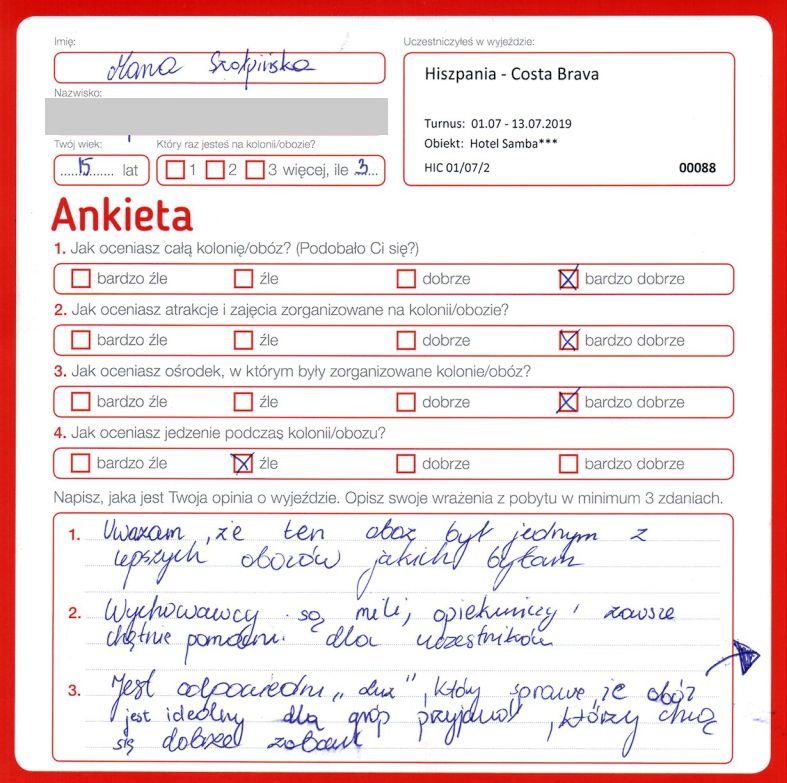 Imię:
Uczestniczyłeś w wyjeździe:
Hiszpania - Costa Brava
Nazwisko:
Turnus: 01.07 - 13.07.2019
Obiekt: Hotel Samba***
HIC 01/07/2
00088
Twój wiek:
Który raz jesteś na kolonii/obozie?
15 lat
1 2 3 więcej, ile 3
Ankieta
1. Jak oceniasz całą kolonię/obóz? (Podobało Ci się?)
bardzo źle źle dobrze bardzo dobrze
2. Jak oceniasz atrakcje i zajęcia zorganizowane na kolonii/obozie?
bardzo źle źle dobrze bardzo dobrze
3. Jak oceniasz ośrodek, w którym były zorganizowane kolonie/obóz?
bardzo źle źle dobrze bardzo dobrze
4. Jak oceniasz jedzenie podczas kolonii/obozu?
bardzo źle źle dobrze bardzo dobrze
Napisz, jaka jest Twoja opinia o wyjeździe. Opisz swoje wrażenia z pobytu w minimum 3 zdaniach.
1. Uważam, że ten obóz był jednym z
lepszych obozów jakich byłam
2. Wychowawcy są mili, opiekuńczy i zawsze
chętnie pomocni dla uczestników
3. Jest odpowiedni „ ", który sprawę, że obóz
jest idealny dla grup przyjaciół, którzy chcą
się dobrze